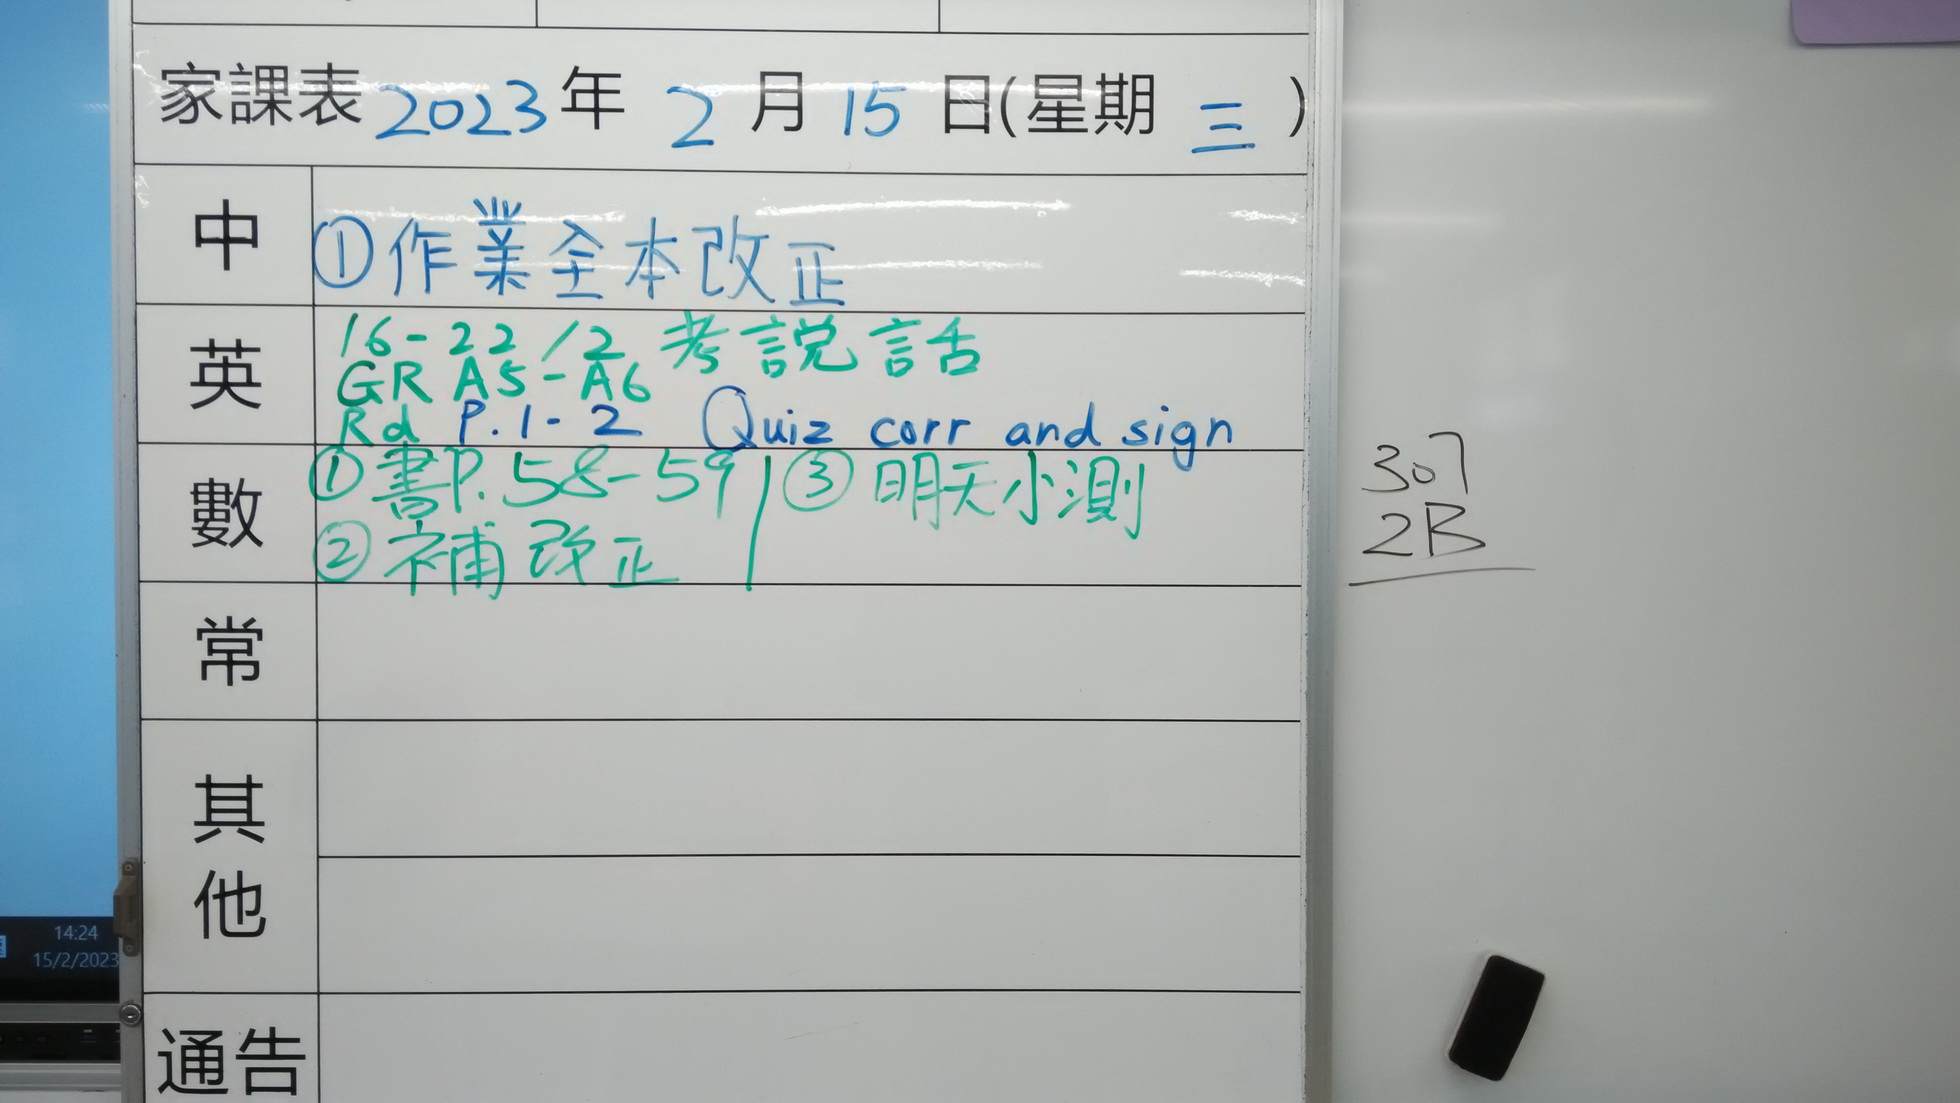 家課表 2023 年 2 月 15 日(星期 三 )
中
①作業全本改正
英
16-22/2 考說話
GR A5-A6
Rd P.1-2 Quiz corr and sign
數
①書P.58-59 ③明天小測
②補改正
常
其他
通告
307
2B
14:24
15/2/2023